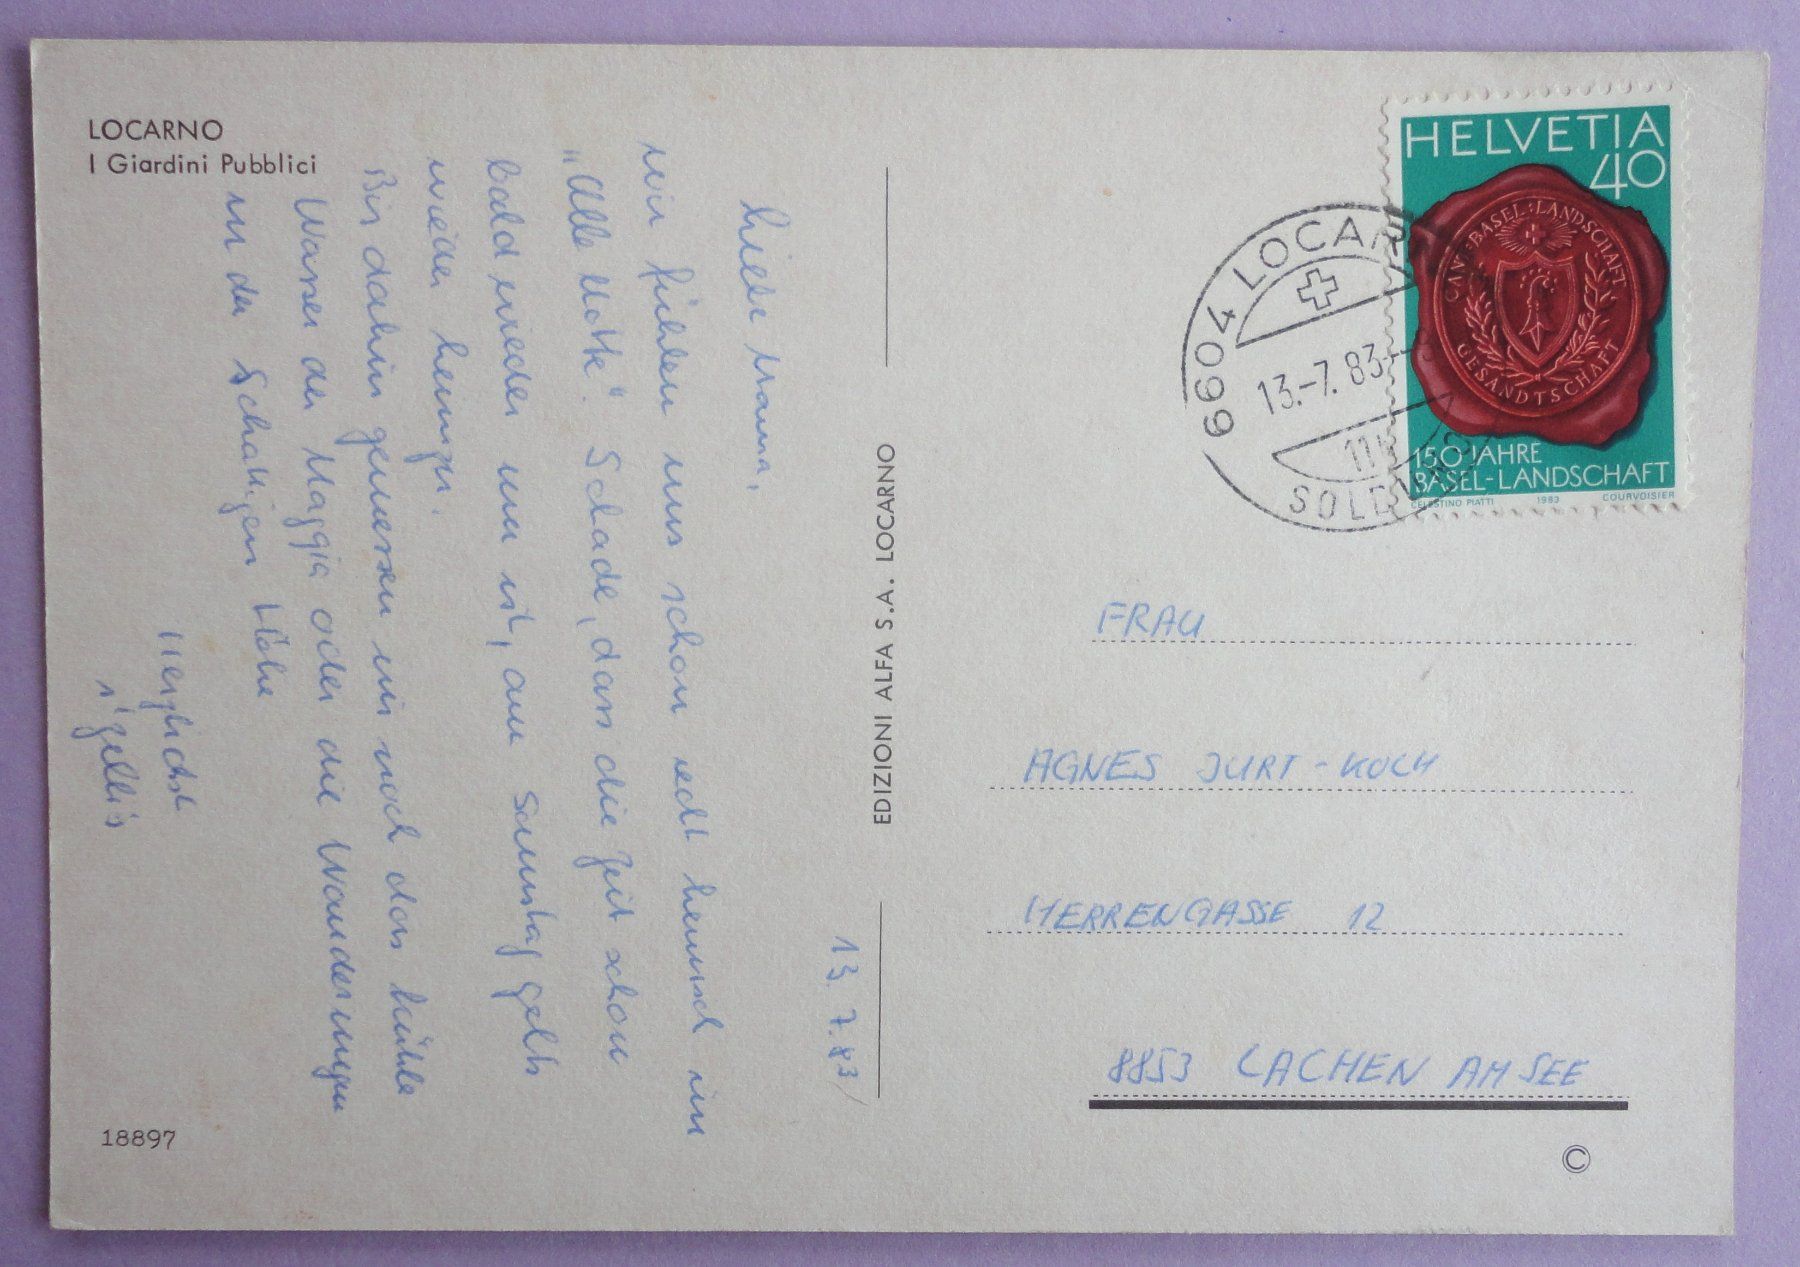 LOCARNO
I Giardini Pubblici
13.7.83
Liebe Mama,
wir fühlen uns schon echt heimisch im
"Alla Motta". Schade, dass die Zeit schon
bald wieder um ist, am Samstag geht's
wieder heimzu.
Bis dahin geniessen wir noch das kühle
Wasser der Maggia oder die Wanderungen
in der schattigen Höhe
Herzlichst
18897
EDIZIONI ALFA S.A. LOCARNO
HELVETIA
40
CANT·BASEL·LANDSCHAFT
GESANDTSCHAFT
150 JAHRE
BASEL-LANDSCHAFT
CELESTINO PIATTI 1983 COURVOISIER
6604 LOCARNO
13.-7.83
FRAU
AGNES JURT-KOCH
HERRENGASSE 12
8853 LACHEN AM SEE
©